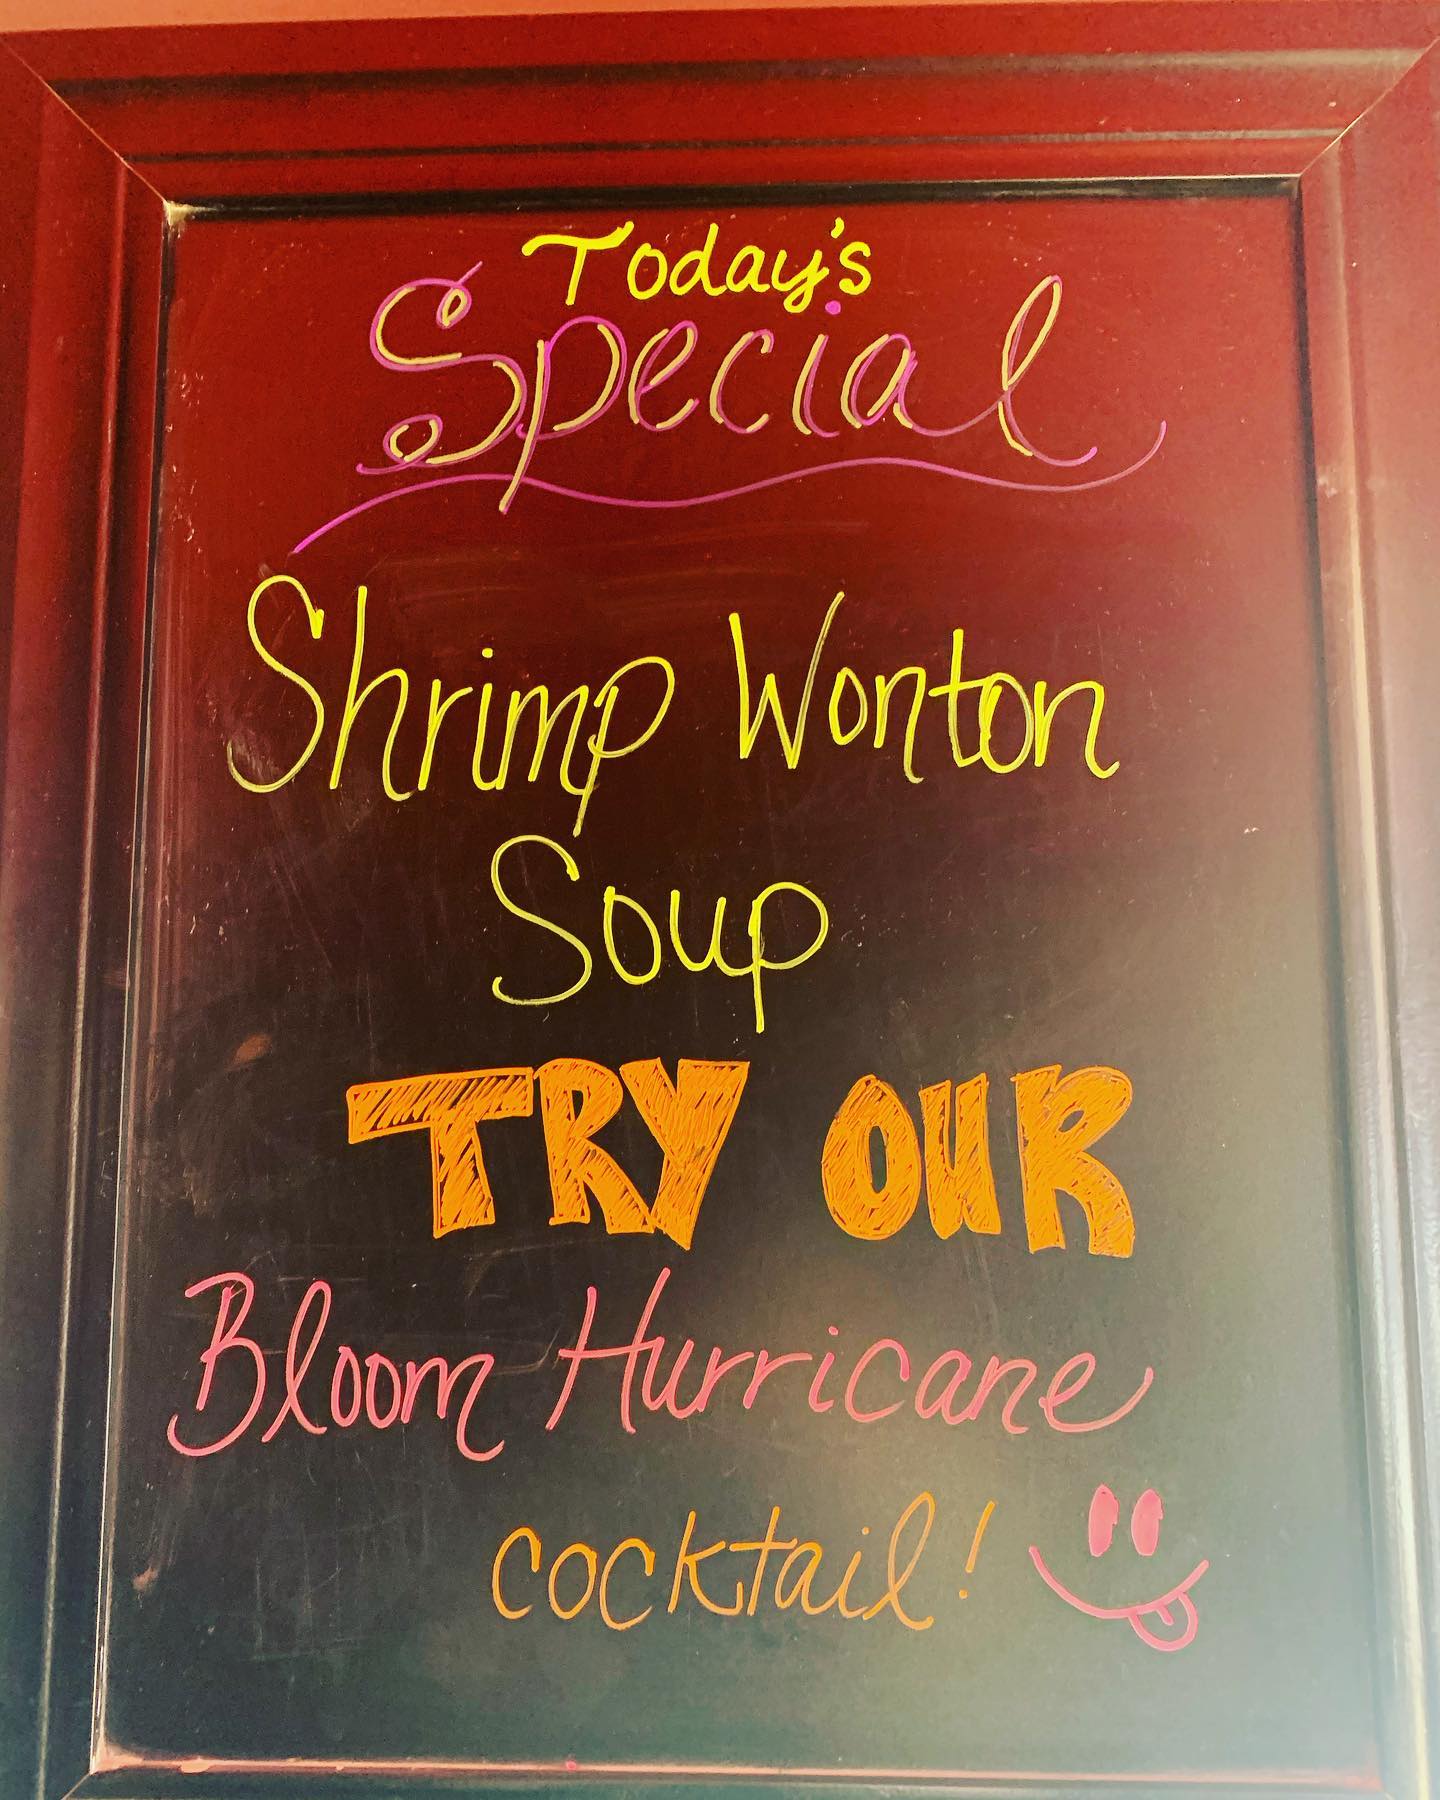 Today's
Special
Shrimp Wonton
Soup
TRY OUR
Bloom Hurricane
cocktail!